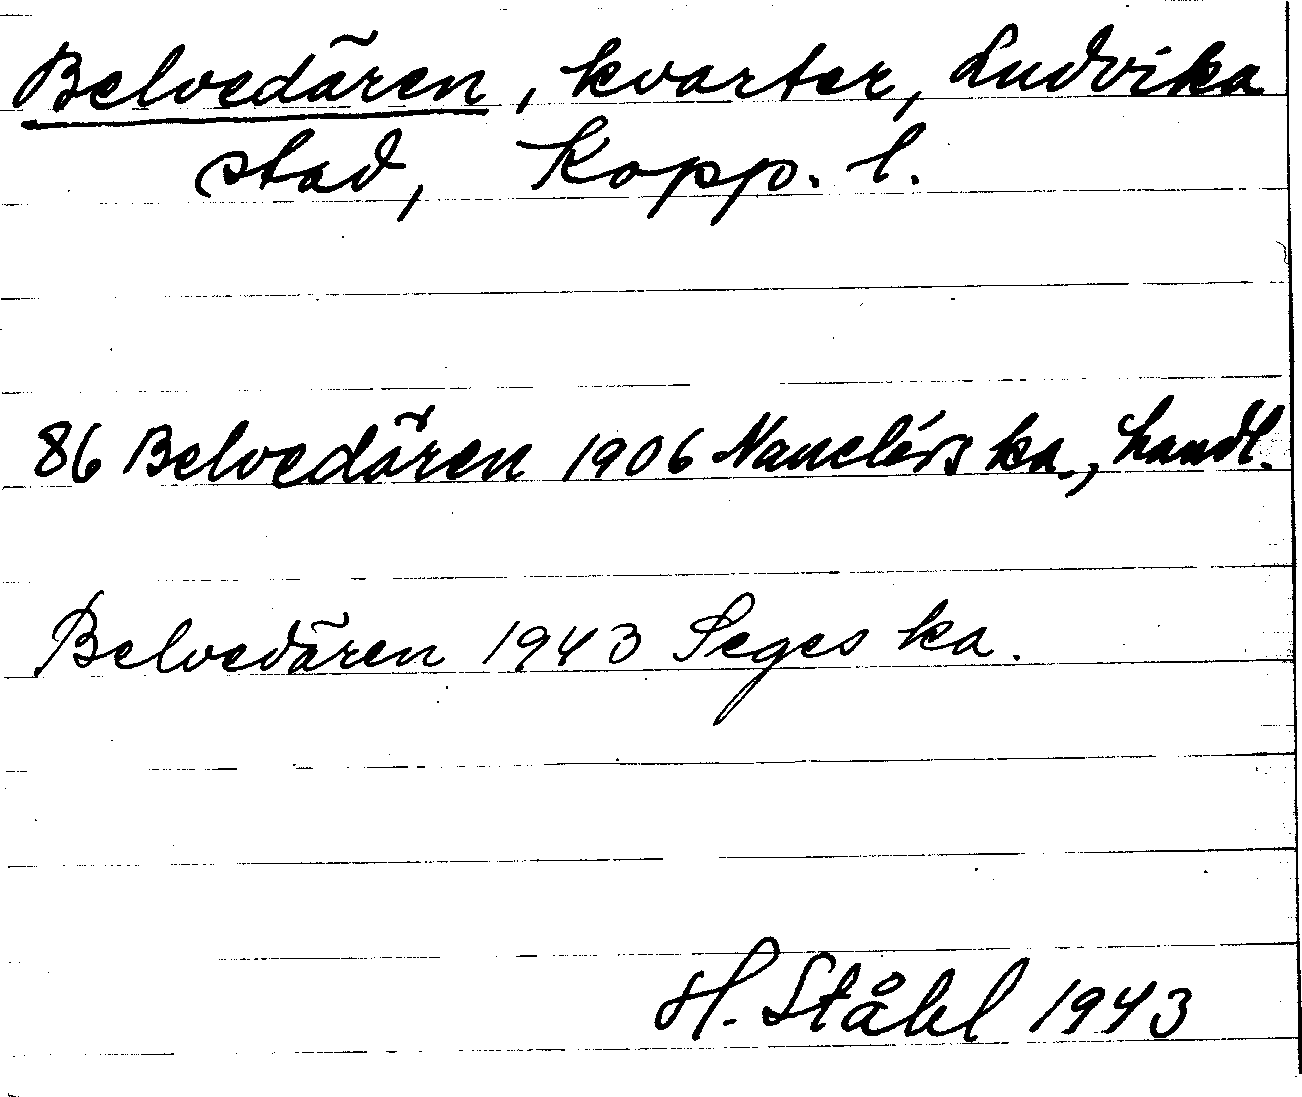 Belvedären, kvarter, Ludvika
stad, Kopp. l.
86 Belvedären 1906 Nauclérs ka., handl.
Belvedären 1943 Seges ka.
H. Ståhl 1943